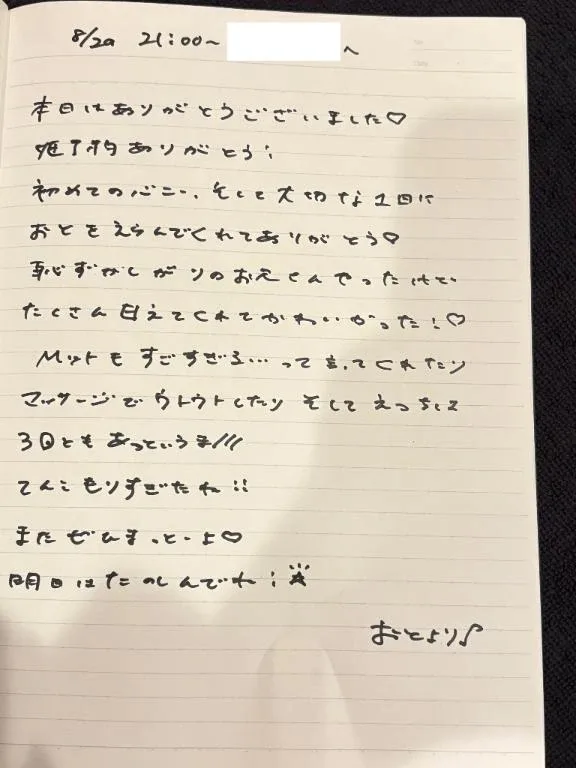 8/20 21:00〜 へ
本日はありがとうございました♡
姫予約ありがとう!
初めてのバニー、そして大切な1日に
おとをえらんでくれてありがとう♡
恥ずかしがりのおえくんやったけど
たくさん甘えてくれてかわいかった!♡
Mットもすごすぎる…って言ってくれたり
マッサージでウトウトしたり そしてえっちに
3回ともあっというま///
てんこもりすぎたね!!
またぜひまっとーよ♡
明日はたのしんでね!☆
おとより♪